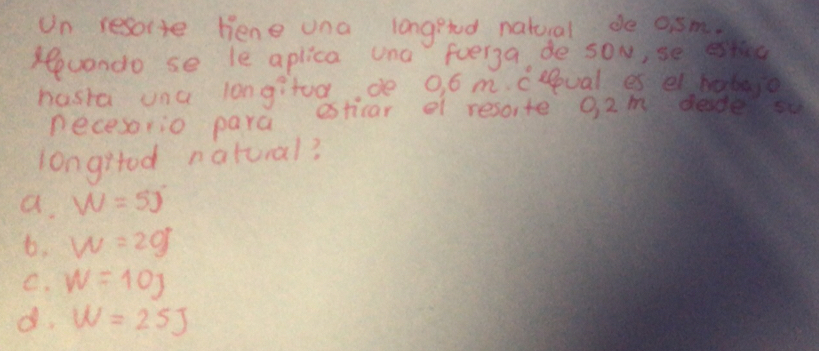 Un resorte tiene una longitud natural de 0,5m.
Cuando se le aplica una fuerza de 50N, se estira
hasta una longitud de 0,6 m. ¿Cual es el trabajo
necesario para esticar el resorte 0,2 m desde su
longitud natural?
a. W = 5J
b. W = 20J
c. W = 10J
d. W = 25J